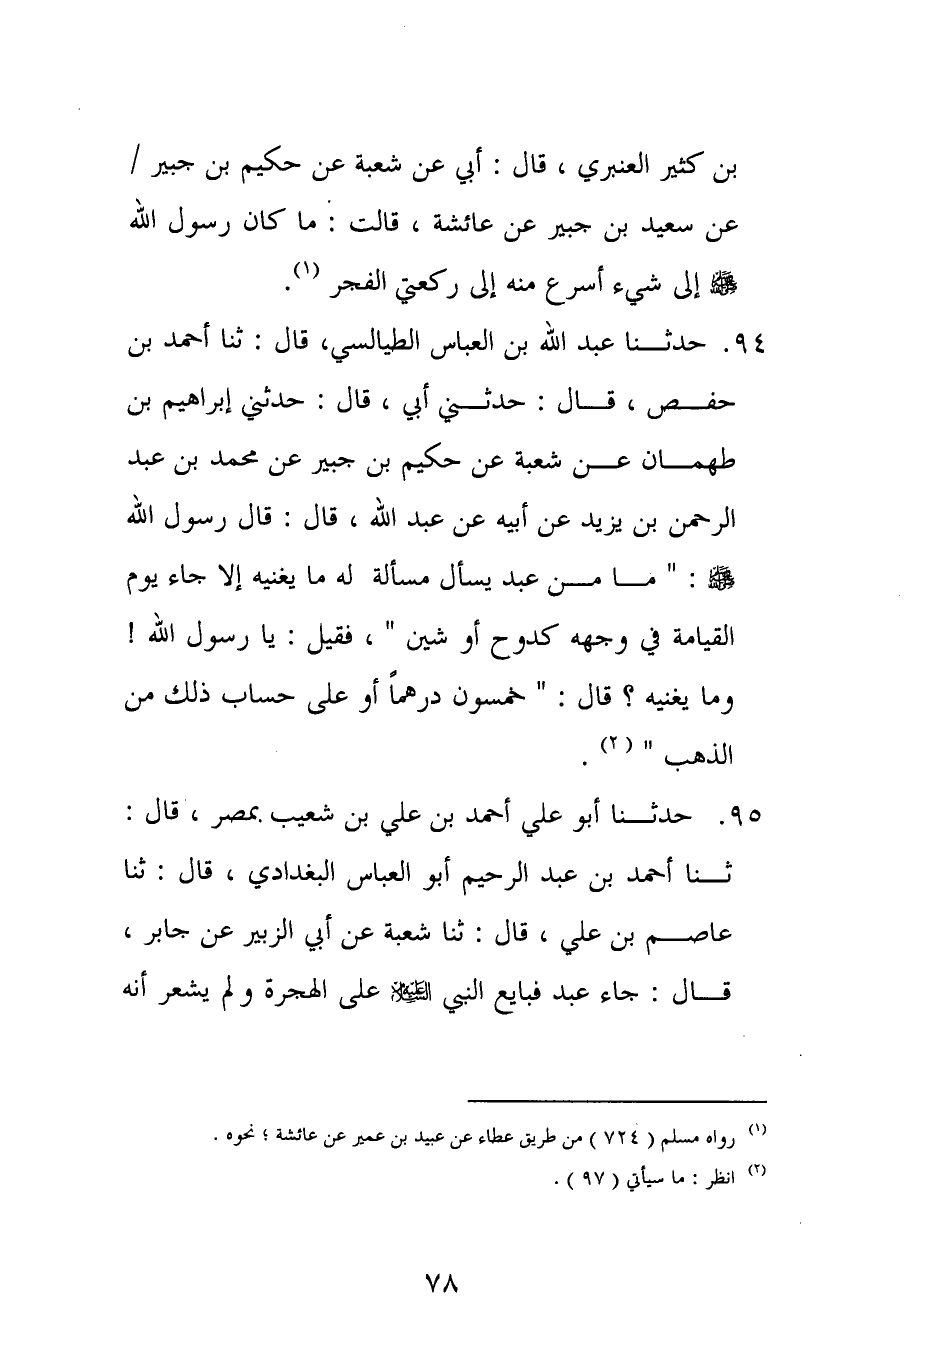 بن كثير العنبري ، قال : أبي عن شعبة عن حكيم بن جبير /
عن سعيد بن جبير عن عائشة ، قالت : ما كان رسول الله
ﷺ إلى شيء أسرع منه إلى ركعتي الفجر (١).
٩٤. حدثــنا عبد الله بن العباس الطيالسي، قال : ثنا أحمد بن
حفــص ، قــال : حدثــني أبي ، قال : حدثني إبراهيم بن
طهمــان عــن شعبة عن حكيم بن جبير عن محمد بن عبد
الرحمن بن يزيد عن أبيه عن عبد الله ، قال : قال رسول الله
ﷺ : " مــا مــن عبد يسأل مسألة له ما يغنيه إلا جاء يوم
القيامة في وجهه كدوح أو شين " ، فقيل : يا رسول الله !
وما يغنيه ؟ قال : " خمسون درهماً أو على حساب ذلك من
الذهب " (٢) .
٩٥. حدثــنا أبو علي أحمد بن علي بن شعيب بمصر ، قال :
ثــنا أحمد بن عبد الرحيم أبو العباس البغدادي ، قال : ثنا
عاصــم بن علي ، قال : ثنا شعبة عن أبي الزبير عن جابر ،
قــال : جاء عبد فبايع النبي عليه السلام على الهجرة و لم يشعر أنه
(١) رواه مسلم ( ٧٢٤ ) من طريق عطاء عن عبيد بن عمير عن عائشة ؛ نحوه .
(٢) انظر : ما سيأتي ( ٩٧ ) .
٧٨